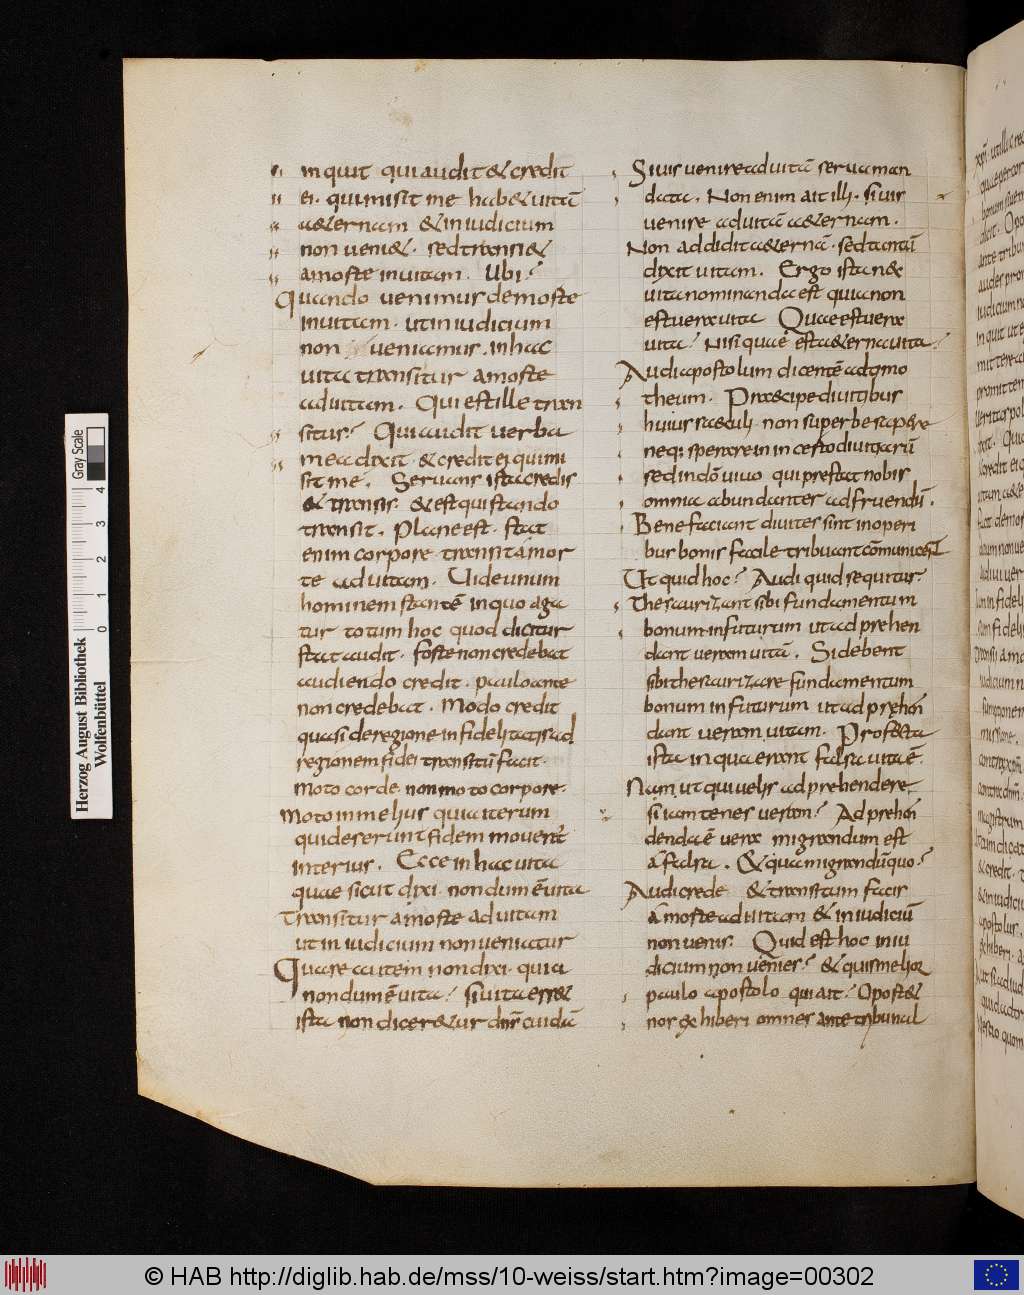 inquit qui audit & credit
ei. qui misit me hab& uitā
a&ernam & in iudicium
non ueni&. sed transi&
a morte in uitam. Ubi?
Quando uenimus de morte
in uitam. ut in iudicium
non ueniamus. in hac
uita transitur a morte
ad uitam. Qui est ille tran
situs? Qui audit uerba
mea dixit. & credit ei qui mi
sit me. Seruans ista credis
& transis. & est qui stando
transit. Plane est. stat
enim corpore. transit a mor
te ad uitam. Uide unum
hominem stantē in quo aga
tur totum hoc quod dicitur
stat audit. forte non credebat
audiendo credit. paulo ante
non credebat. modo credit
quasi de regione infidelitatis ad
regionem fidei transitū facit.
moto corde. non moto corpore.
moto in melius quia iterum
qui deserunt fidem mouent
interius. Ecce in hac uita
quae sicut dixi. nondum ē uita
Transitur a morte ad uitam
ut in iudicium non ueniatur
Quare autem non dixi. quia
nondum ē uita? si uita ess&
ista non dicer&ur cuidā
Si uis uenire ad uitā serua man
data. Non enim ait illi. si uis
uenire ad uitā a&ernam.
Non addidit a&ernā. sed tantū
dixit uitam. Ergo ista n&
uita nominanda est quia non
est uera uita Quae est uera
uita? Nisi quae est a&erna uita?
Audi apostolum dicentē ad timo
theum. Praecipe diuitibus
huius saeculi. non superbe sapere
neq; sperare in incerto diuitiarū
sed in dō uiuo qui prestat nobis
omnia abundanter ad fruendū.
Bene faciant diuites sint in operi
bus bonis facile tribuant
Ut quid hoc? Audi quid sequitur?
Thesaurizant sibi fundamentum
bonum in futurum ut adprehen
dant ueram uitā. Si debent
sibi thesaurizare fundamentum
bonum in futurum ut adprehen
dant ueram uitam. Profecta
ista in qua erant falsa uita ē.
Nam ut qui uelis adprehendere
si iam tenes ueram? Adprehen
denda ē uera migrandum est
a falsa. & qua migrandū quo?
Audi crede & transitum facis
a morte ad uitam & in iudiciū
non uenis. Quid est hoc in iu
dicium non uenies? & quis melior
paulo apostolo qui ait? Oport&
nos exhiberi omnes ante tribunal
Herzog August Bibliothek
Wolfenbüttel
Gray Scale
0 1 2 3 4
© HAB http://diglib.hab.de/mss/10-weiss/start.htm?image=00302